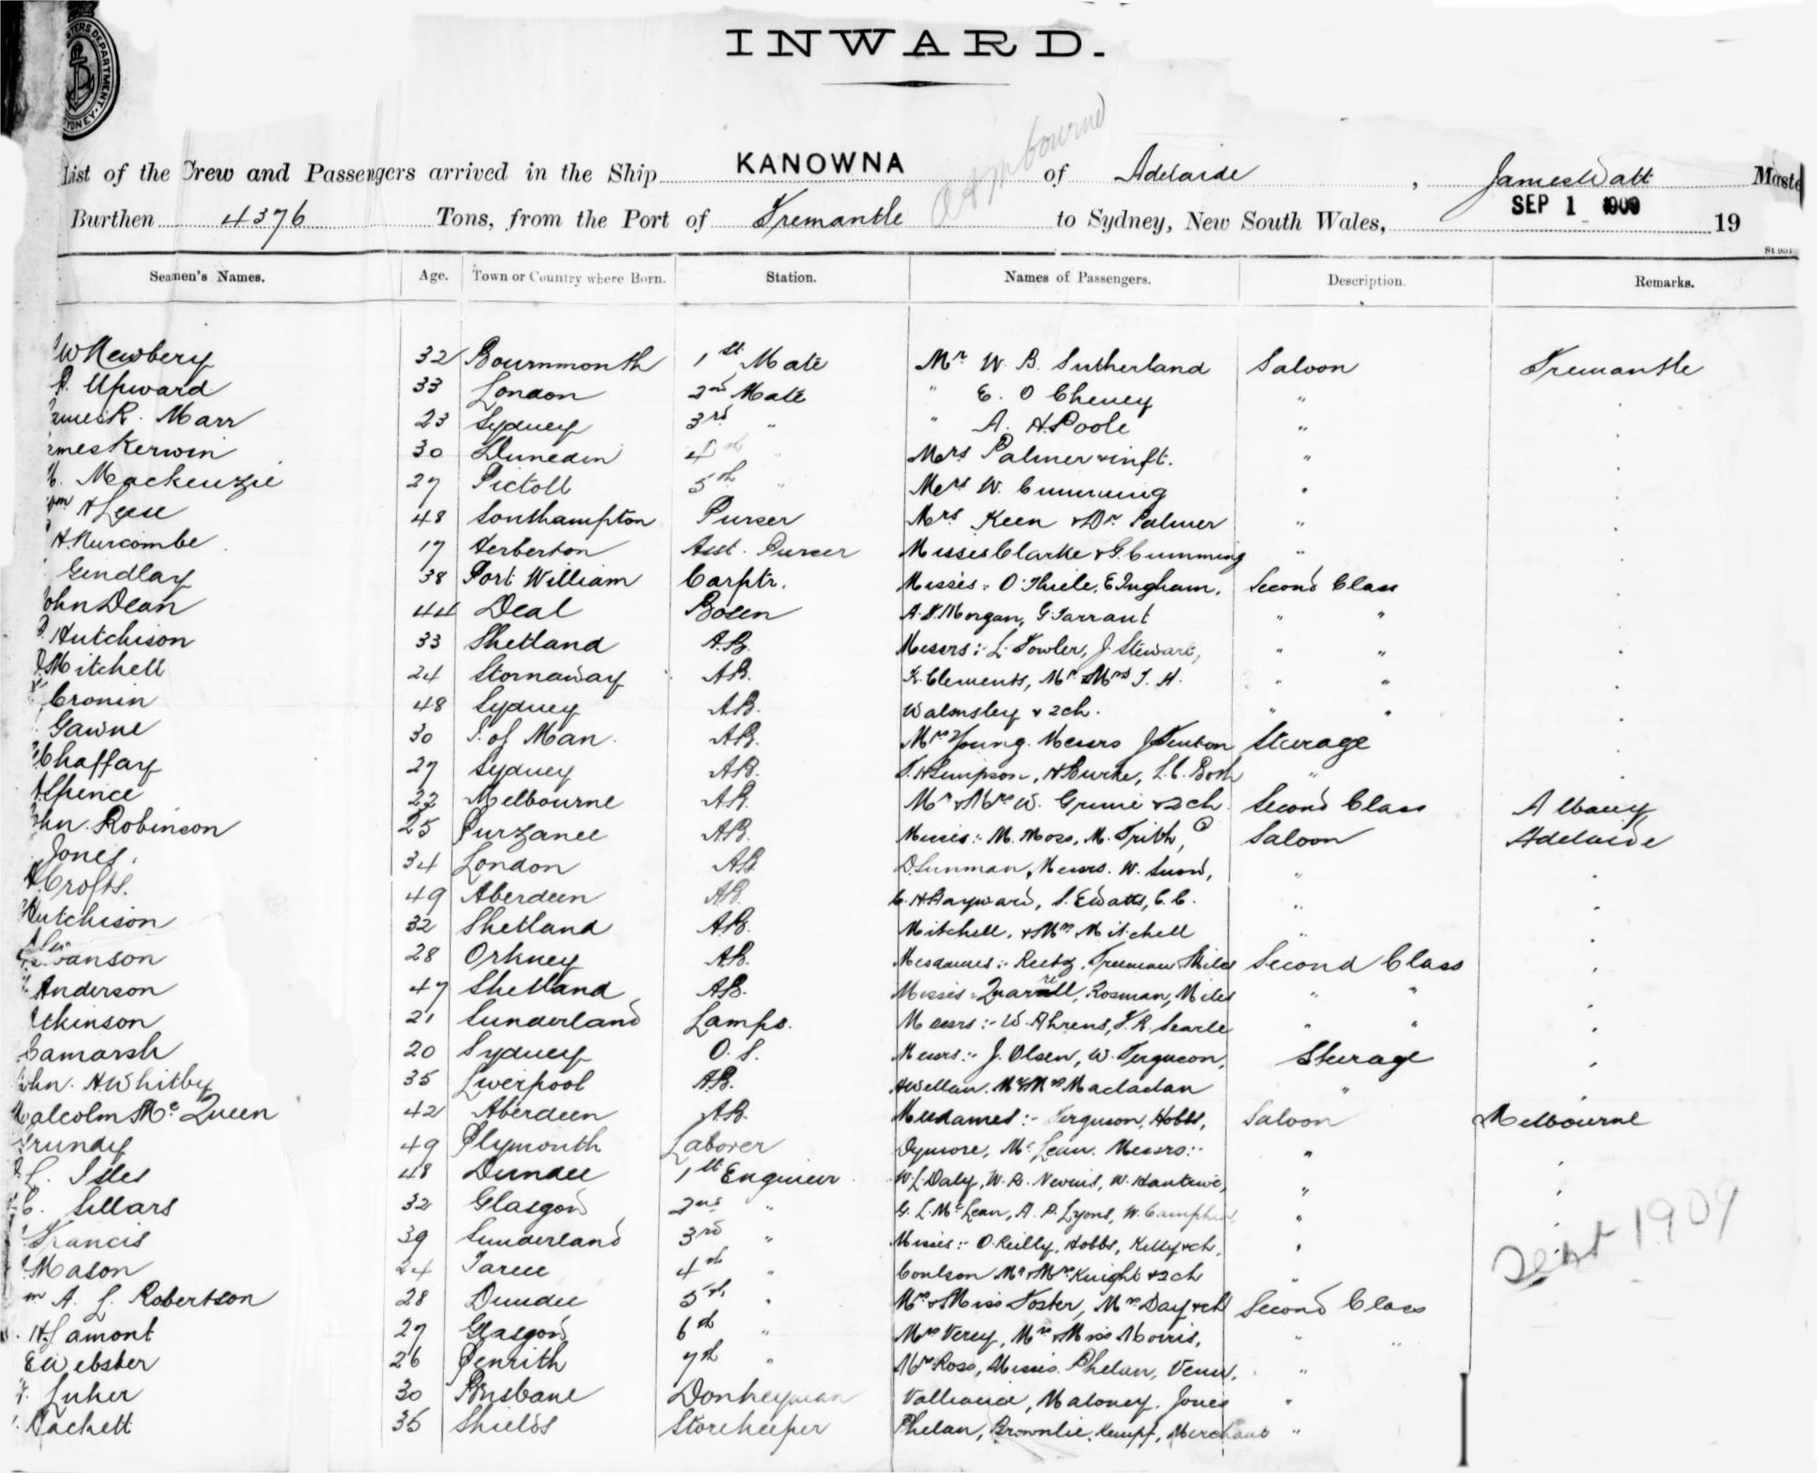 INWARD.
List of the Crew and Passengers arrived in the Ship KANOWNA of Adelaide, James Watt Maste
Burthen 4376 Tons, from the Port of Fremantle to Sydney, New South Wales, SEP 1 1909 19
Seamen's Names. Age. Town or Country where Born. Station. Names of Passengers. Description. Remarks.
W Newbery 32 Bournmonth 1st Mate Mr W. B. Sutherland Saloon Fremantle
Upward 33 London 2nd Mate " E. O Cheney "
R. Marr 23 Sydney 3rd " " A. H. Poole "
Kerwin 30 Dunedin 4th " Mrs Palmer & inft. "
Mackenzie 27 Pictoll 5th " Mrs W. Cumming "
H Leese 48 Southampton Purser Mrs Keen & Dr Palmer "
H. Nurcombe 17 Herberton Asst. Purser Misses Clarke & G. Cumming "
Gendlay 38 Port William Carptr. Misses:- O. Thiele, E Ingham, Second Class
John Dean 44 Deal Bosen A. Morgan, G. Tarrant " "
Hutchison 33 Shetland A.B. Messrs:- L. Fowler, J. Stewart, " "
Mitchell 24 Stornaway A.B. K. Clements, Mr & Mrs T. H. " "
Cronin 48 Sydney A.B. Walmsley & 2ch. " "
Gawne 30 I. of Man A.B. Mrs Young. Messrs J Fenton Sturage
Chaffay 27 Sydney A.B. Simpson, H Burke, L. C. Bosh "
Spence 22 Melbourne A.B. Mr & Mrs W. & 2ch. Second Class Albany
John Robinson 25 Purzance A.B. Misses:- M. Moss, M. Frith, Saloon Adelaide
Jones. 34 London A.B. Messrs. W. "
Crofts. 49 Aberdeen A.B. C. H Hayward, S. E Watts, C. C. "
Hutchison 32 Shetland A.B. Mitchell, & Mrs Mitchell "
Swanson 28 Orkney A.B. Mesdames:- Reetz, Freeman, Miles Second Class
Anderson 47 Shetland A.B. Misses:- Rosman, Miles " "
Atkinson 21 Sunderland Lamps. Messrs:- W. Ahrens, F. R. Searle " "
Camarsh 20 Sydney O.S. Messrs:- J. Olsen, W. Ferguson, Sturage
John. H Whitby 35 Liverpool A.B. Mr & Mrs Maclaclan "
Malcolm McQueen 42 Aberdeen A.B. Mesdames:- Ferguson, Hobbs, Saloon Melbourne
Grundy 49 Plymouth Laborer Dymore, McLean. Messrs:- "
L. Isles 48 Dundee 1st Engineer W. L Daly, W. R. Nevins, "
C. Sellars 32 Glasgow 2nd " G. L. McLean, A. P. Lyons, W. "
Francis 39 Sunderland 3rd " Misses:- O'Reilly, Hobbs, Kelly & ch. "
Mason 24 Taree 4th " Coulson Mr & Mrs Knight & 2ch "
A. L. Robertson 28 Dundee 5th " Mrs & Miss Foster, Mrs Day & ch Second Class
H. Lamont 27 Glasgow 6th " Mrs Verey, Mrs & Miss Norris, " "
E Webster 26 Penrith 7th " Mrs Ross, Misses Phelan, "
Luker 30 Brisbane Donkeyman Maloney, Jones "
Hackett 35 Shields Storekeeper Phelan, Brownlie, Kempf, Merchant "
Sept 1909